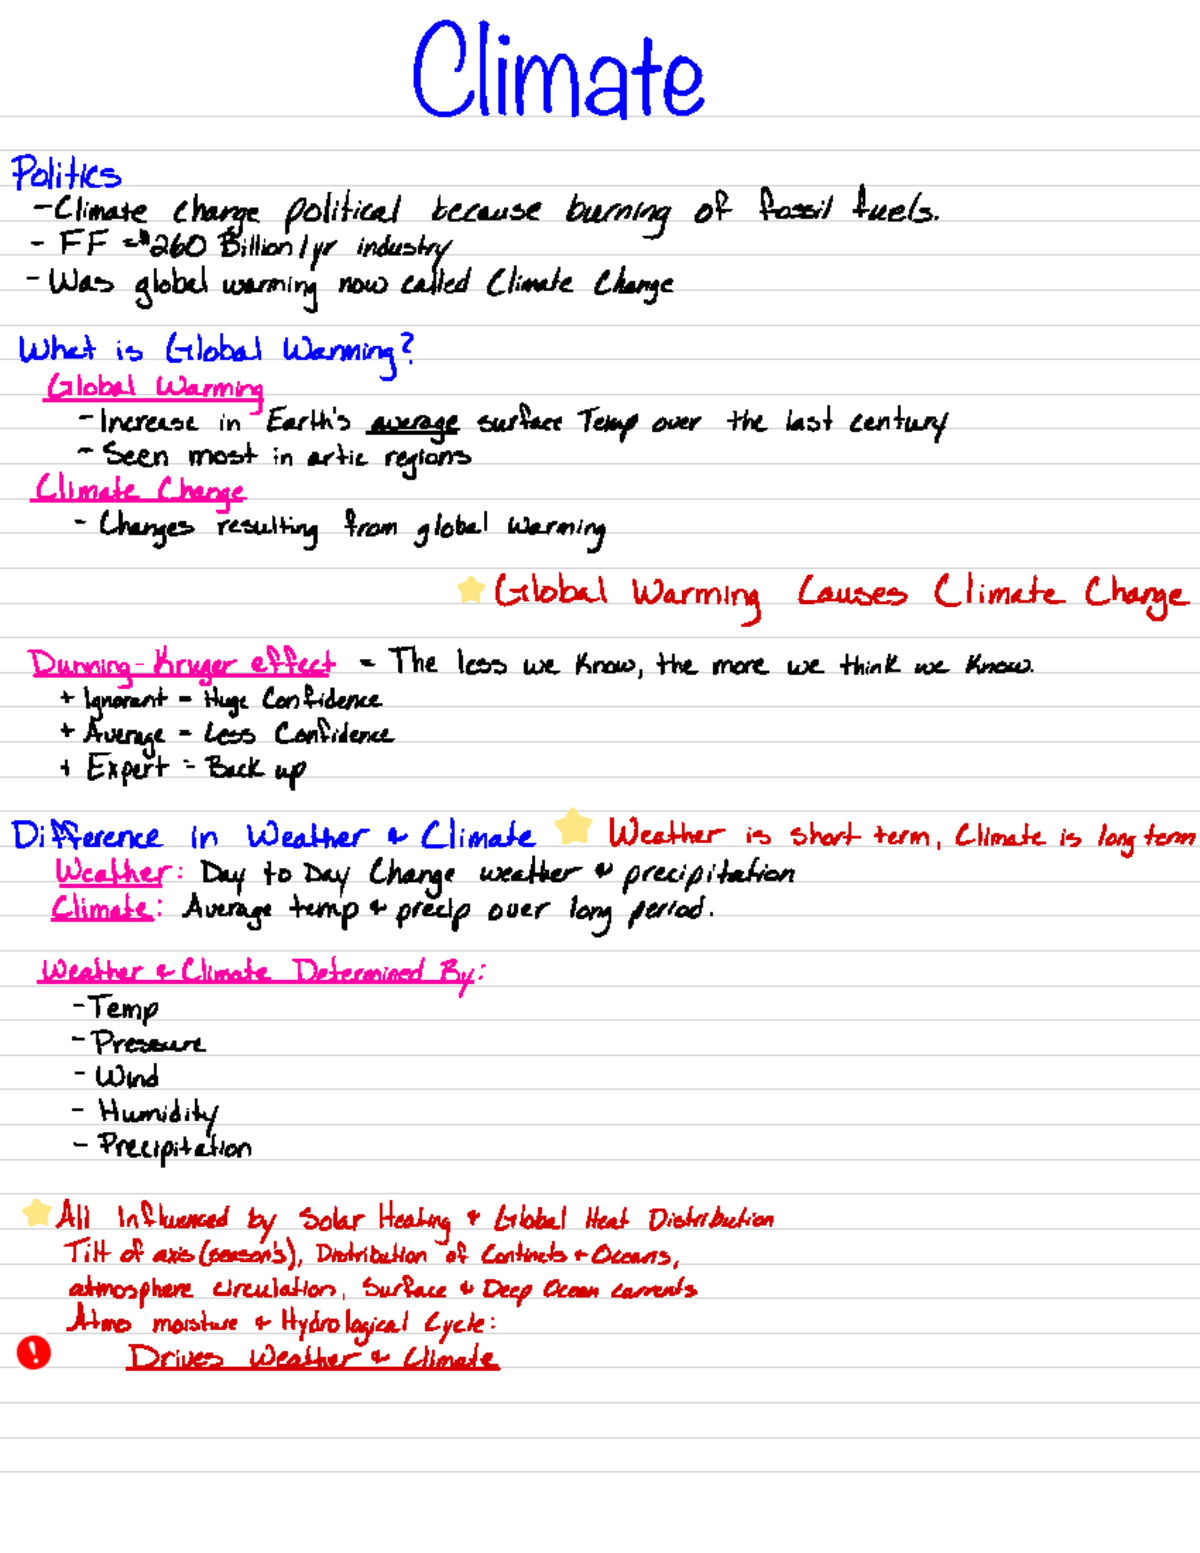 Climate
Politics
-Climate change political because burning of fossil fuels.
- FF =$260 Billion/yr industry
- Was global warming now called Climate Change
What is Global Warming?
Global Warming
- Increase in Earth's average surface Temp over the last century
- Seen most in artic regions
Climate Change
- Changes resulting from global warming
Global Warming Causes Climate Change
Dunning-Kruger effect = The less we know, the more we think we know.
+ Ignorant = Huge Confidence
+ Average = Less Confidence
+ Expert = Back up
Difference in Weather & Climate Weather is short term, Climate is long term
Weather: Day to Day Change weather & precipitation
Climate: Average temp & precip over long period.
Weather & Climate Determined By:
- Temp
- Pressure
- Wind
- Humidity
- Precipitation
All Influenced by Solar Heating & Global Heat Distribution
Tilt of axis (season's), Distribution of Continets & Oceans,
atmosphere circulation, Surface & Deep Ocean currents
Atmo moisture & Hydrological Cycle:
! Drives Weather & Climate